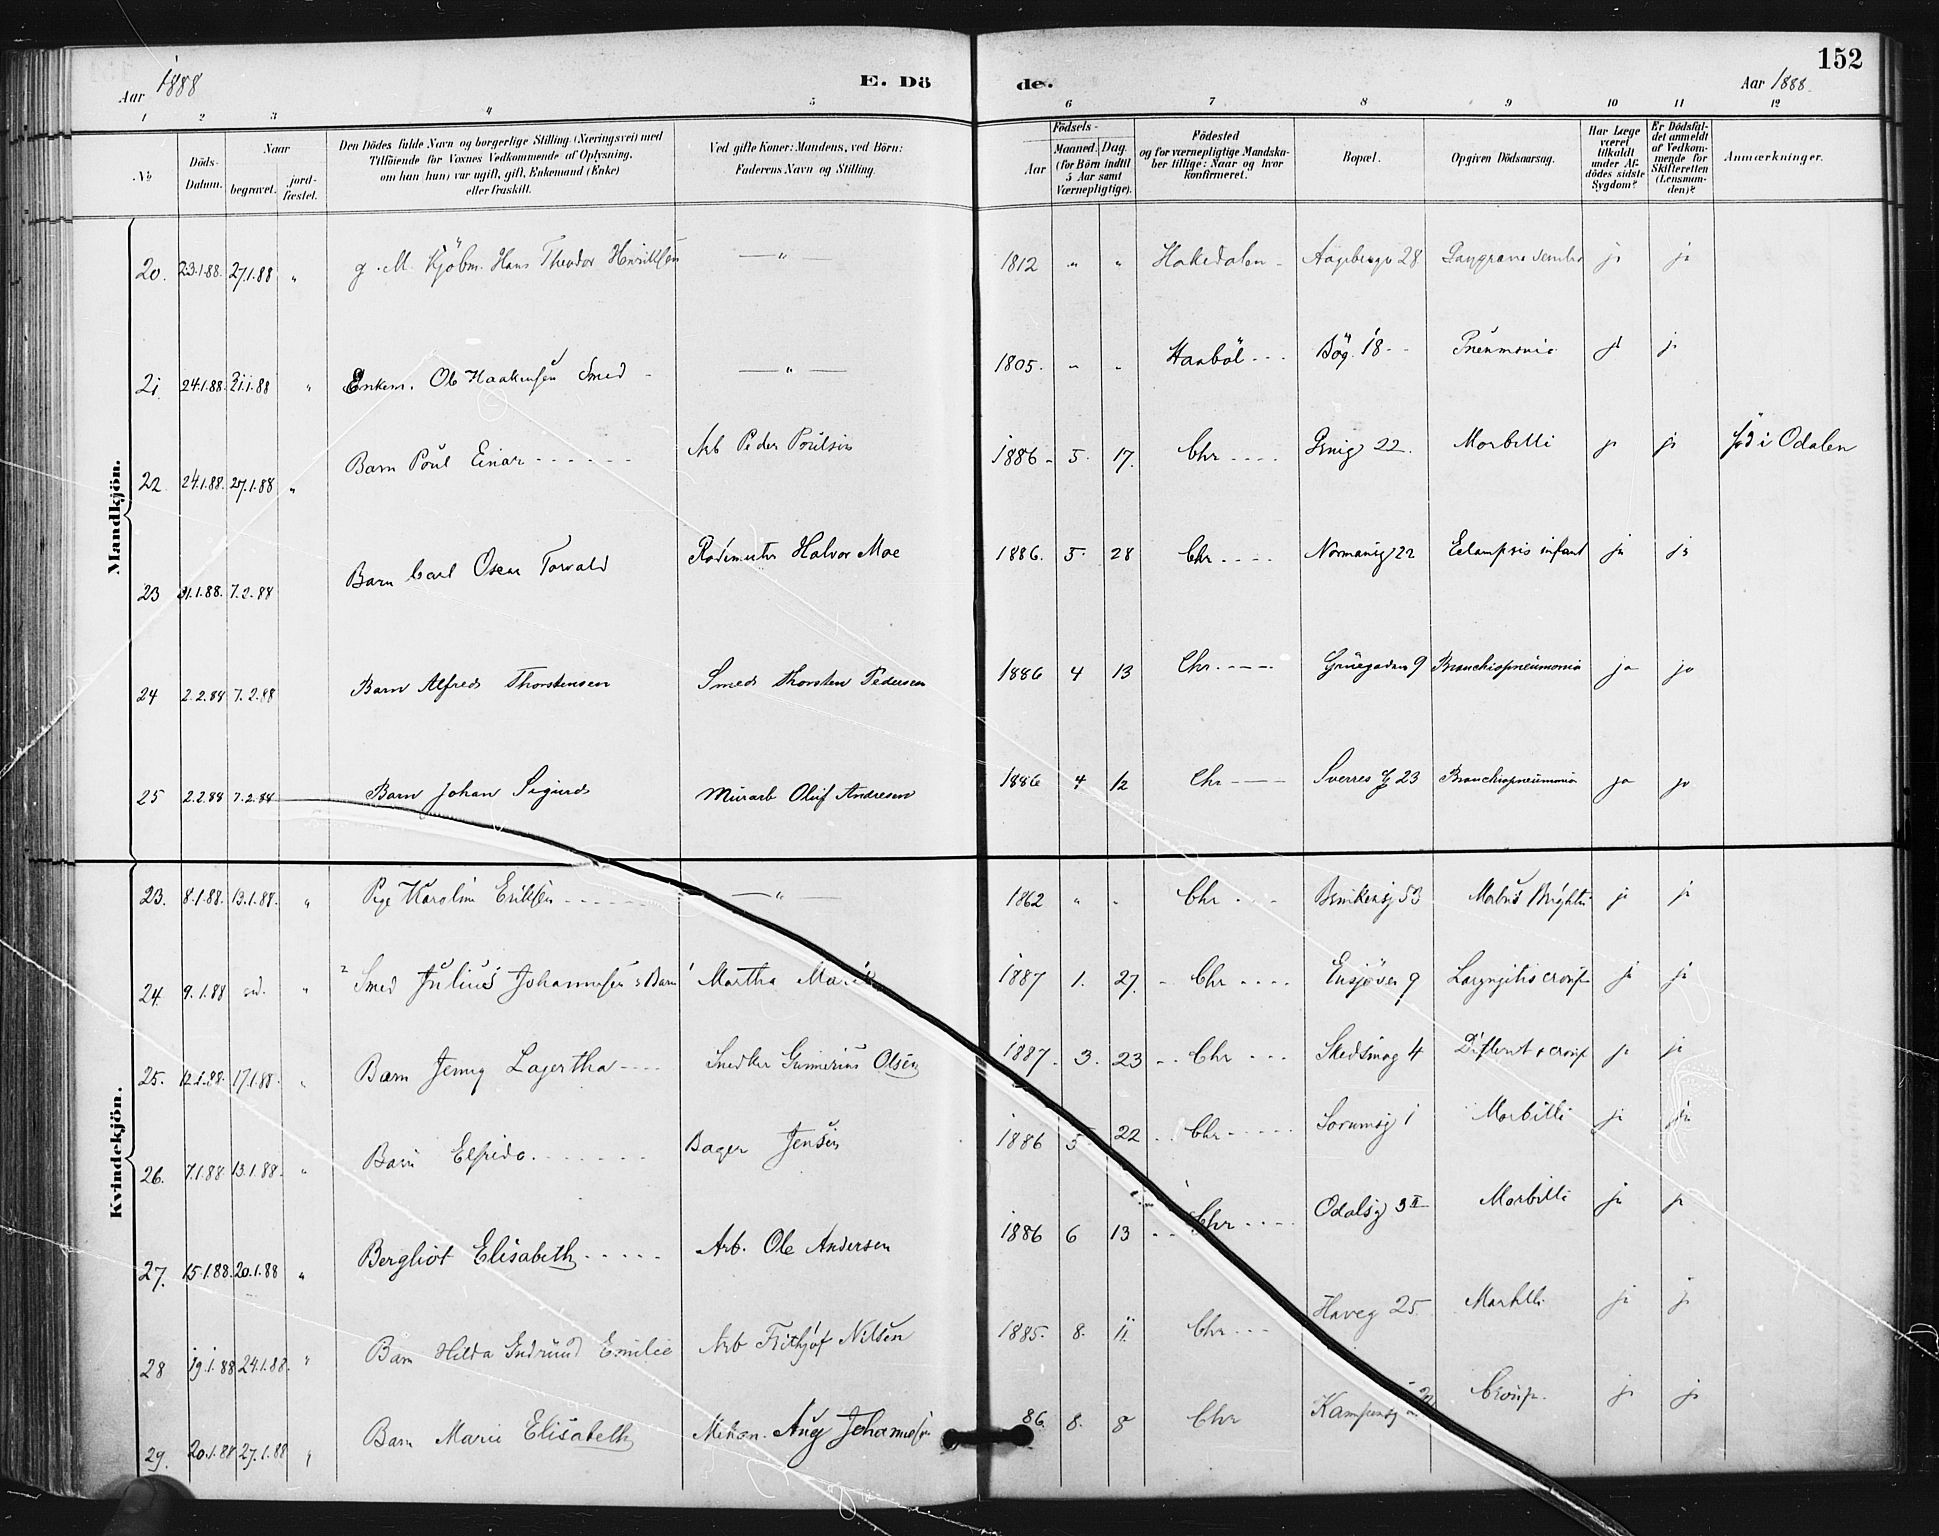 152
Aar 1888
E. Dö
de.
Aar 1888.
1 2 3 4 5 6 7 8 9 10 11 12
No
Döds-Datum.
Naar
begravet.
jordfæstet.
Den Dödes fulde Navn og borgerlige Stilling (Næringsvei) med
Tilföiende for Voxnes Vedkommende af Oplysning,
om han (hun) var ugift, gift, Enkemand (Enke)
eller fraskilt.
Ved gifte Koner: Mandens, ved Börn:
Faderens Navn og Stilling.
Födsels-
Aar
Maaned. Dag.
(for Börn indtil
5 Aar samt
Værnepligtige).
Födested
og for værnepligtige Mandska-
ber tillige: Naar og hvor
konfirmeret.
Bopæl.
Opgiven Dödsaarsag.
Har Læge
været
tilkaldt
under Af-
dödes sidste
Sygdom?
Er Dödsfal-
det anmeldt
af Vedkom-
mende for
Skifteretten
(Lensman-
den)?
Anmærkninger.
Mandkjön.
20. 23.1.88. 27.1.88 " g. M. Kjöbm. Hans Theodor Henriksen — " — 1812 " " Hakedalen - 28 Gangræne senilis ja ja
21. 24.1.88. 31.1.88 " Enkem. Ole Haakensen Smed - — " — 1805. " " Haaböl - - - Bög. 18 - - Pneumonia ja ja
22 24.1.88. 27.1.88 " Barn Poul Einar - - - - - - Arb Peder Poulsen 1886 - 5. 17. Chr - - - - 22. Morbilli ja ja föd i Odalen
23 31.1.88. 7.2.88 Barn Carl Oscar Torvald Rodemester Halvor Moe 1886. 5. 28 Chr. - - - - Normanng 22 Eclampsis infant ja ja
24 2.2.88 7.2.88 Barn Alfred Thorstensen Smed Thorsten Pedersen 1886 4 13 Chr. - - - - Grüegaden 9 Bronchiopneumonia ja ja
25 2.2.88 7.2.88 Barn Johan Sigurd Murarb Oluf Andresen 1886 4 12 Chr - - - Sverres g 23 Bronchiopneumonia ja ja
Kvindekjön.
23. 8.1.88. 13.1.88. " Pige Karolin Eriksen - - - - - — " — 1862 " " Chr - - - 53 Morbus Brightii ja ja
24. 9.1.88 " Smed Julius Johannesen s Barn Martha Marie 1887 1. 27. - Chr - - - - Ensjövei 9 Laryngitis croup ja ja
25. 12.1.88. 17.1.88. " Barn Jenny Lagertha - - - - Snedker Gunnerius Olsen 1887. 3. 23 - - Chr - - - Skedsmog 4 Difterit & croup ja ja
26. 7.1.88 13.1.88. " Barn Elfrida. - - - - - - Bager Jensen 1886 5. 22 - - Chr - - - - - Sorumsg 1 Morbilli ja ja
27. 15.1.88. 20.1.88 " Bergliot Elisabeth - - - - - Arb. Ole Andersen 1886 6 13 - - Chr - - - - Odalsg 3 II Morbilli ja ja
28 19.1.88 24.1.88. " Barn Hilda Gudrund Emilie Arb Frithjof Nilsen 1885. 8. 11. Chr - - - Haveg 25 Morbilli ja ja
29. 20.1.88 27.1.88 " Barn Marie Elisabeth Mekan. Aug Johannesen 86. 8. 8 Chr Kampensg Croup. ja ja